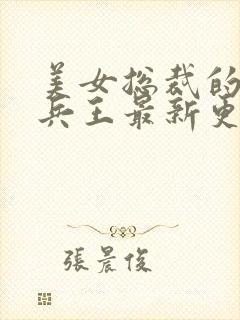 美女总裁的
兵王最新更
張晨俊